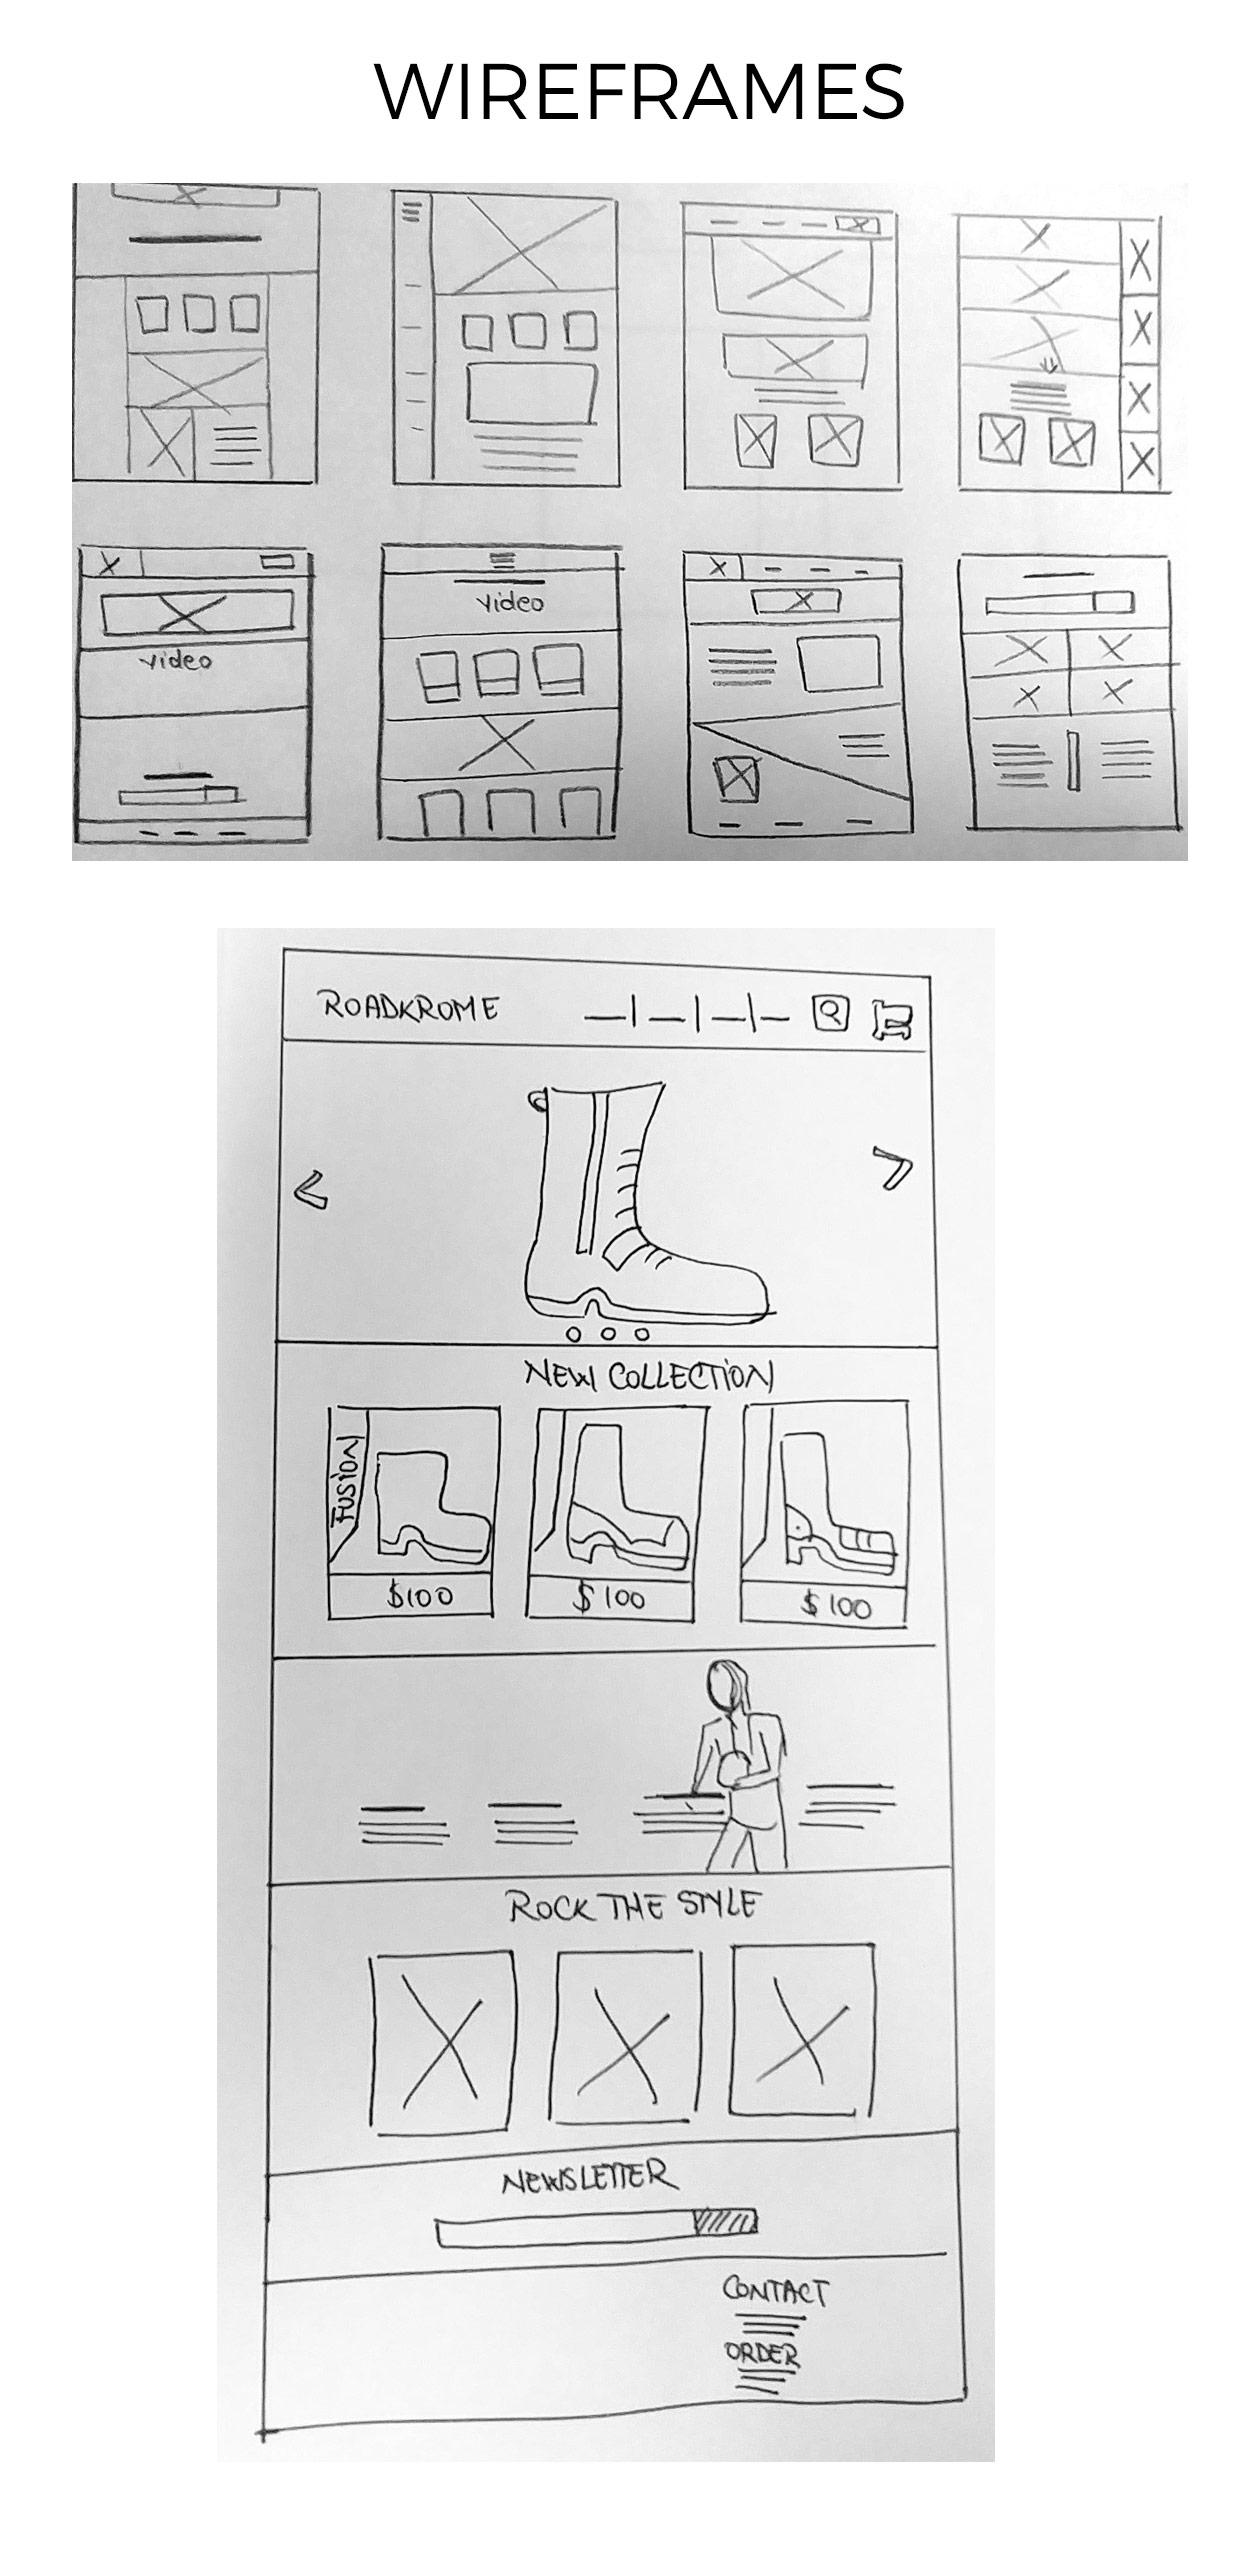 WIREFRAMES
video
video
ROADKROME
NEW COLLECTION
FUSION
$100
$100
$100
ROCK THE STYLE
NEWSLETTER
CONTACT
ORDER